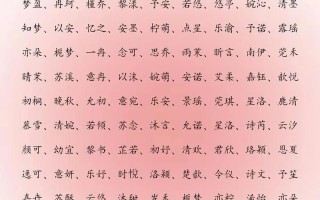 梦盈、冉珂、槿乔、黎漾、予安、若悠、悠亭、婉沁、清墨
知梦、以安、忆之、安墨、柠萌、点星、乐渝、予诺、露瑶
亦朵、栀梦、一冉、念可、思乔、雨茉、昕言、南伊、莞禾
晴茉、苏溪、意冉、以沫、婉萌、安诺、艾柔、嘉钰、歆悦
初桐、晚秋、允初、意宛、乐安、景瑶、莞琪、星洛、鹿清
慕雪、清婉、若倾、苏念、沐言、允诺、星洛、诗芮、云汐
颜可、幼宜、黎书、芷若、初妤、清欢、君欣、珞颖、思夏
逸可、意妍、乐妤、时悦、洛颖、楚歆、令仪、诗文、予笙